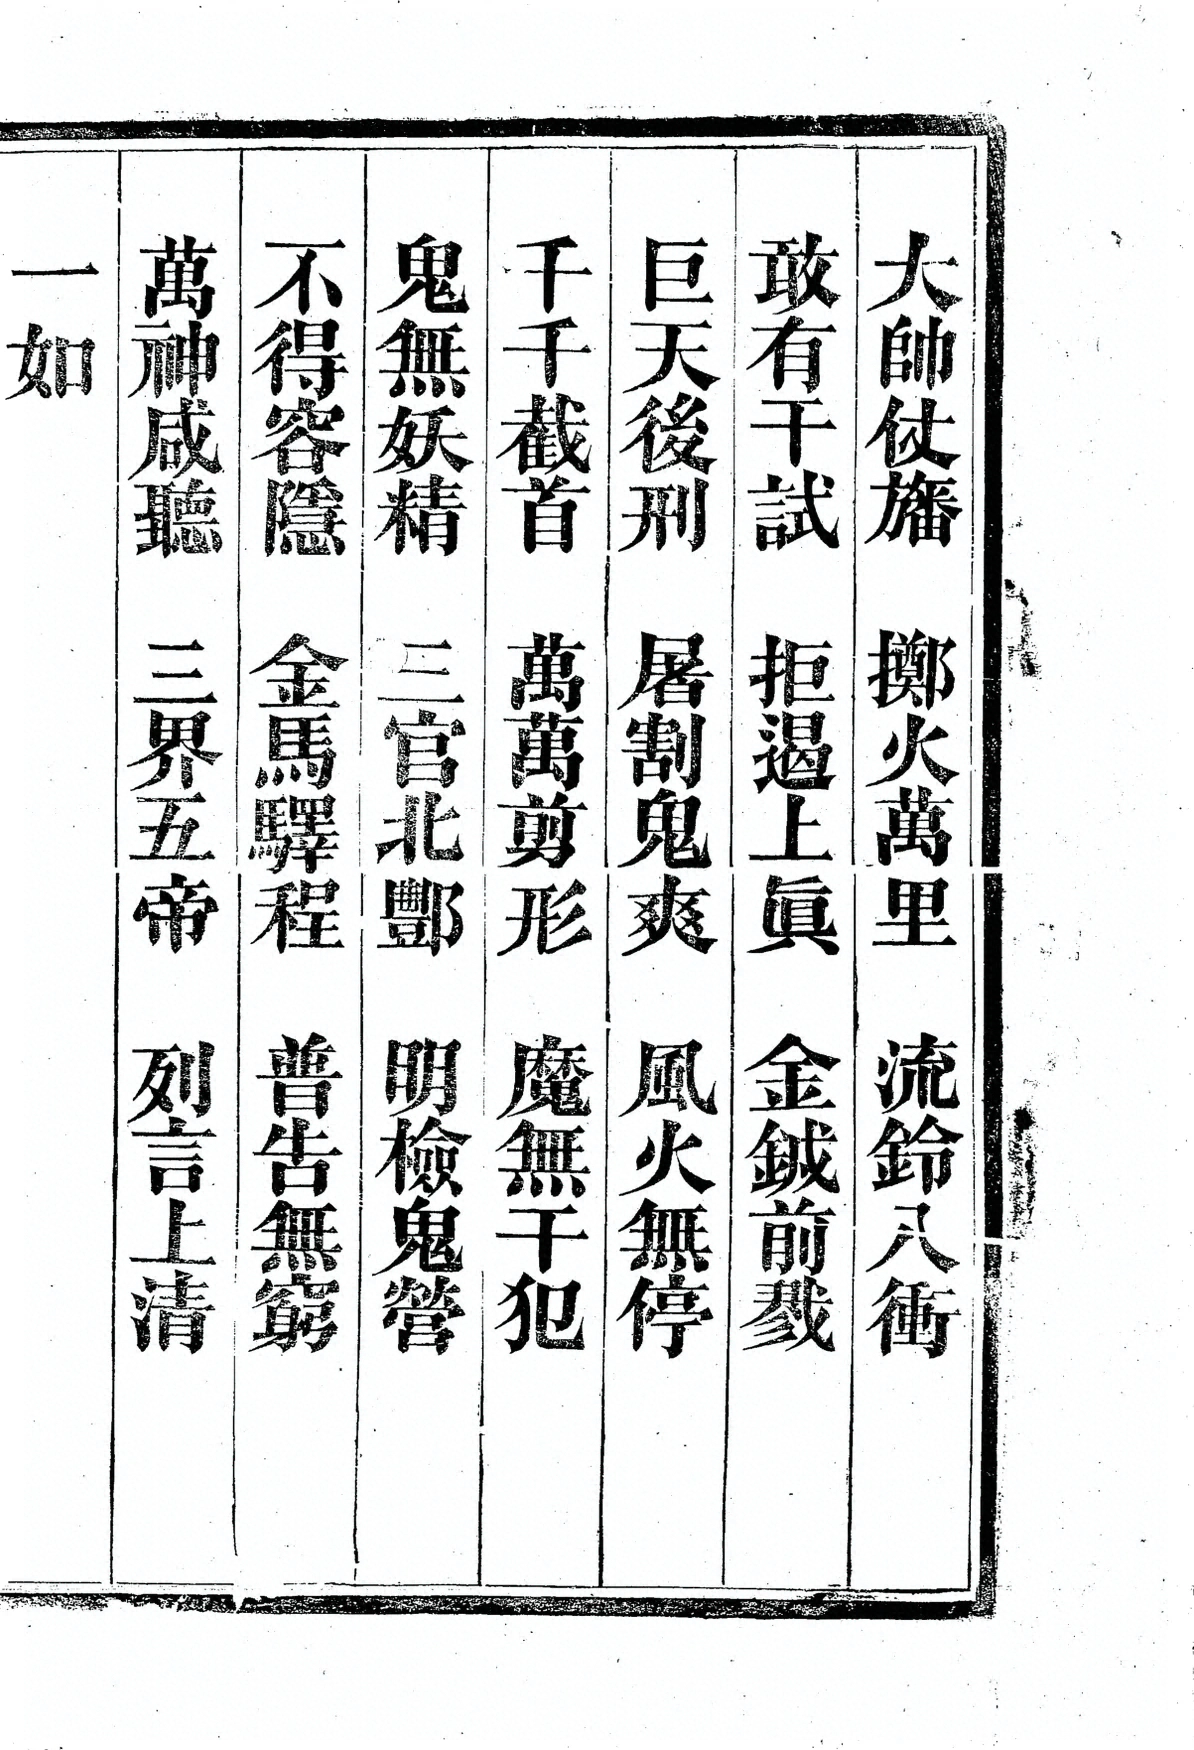 大帥仗旛　擲火萬里　流鈴八衝
敢有干試　拒遏上眞　金鉞前戮
巨天後刑　屠割鬼爽　風火無停
千千截首　萬萬剪形　魔無干犯
鬼無妖精　三官北酆　明檢鬼營
不得容隱　金馬驛程　普告無窮
萬神咸聽　三界五帝　列言上清
一如